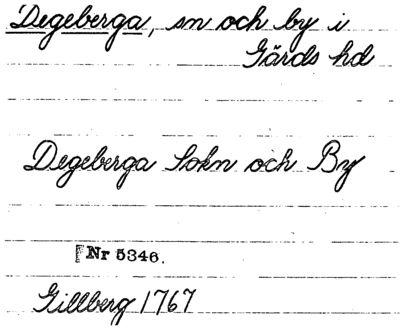 Degeberga, sn och by i
Gärds hd
Degeberga Sokn och By
Nr 5346.
Gillberg 1767